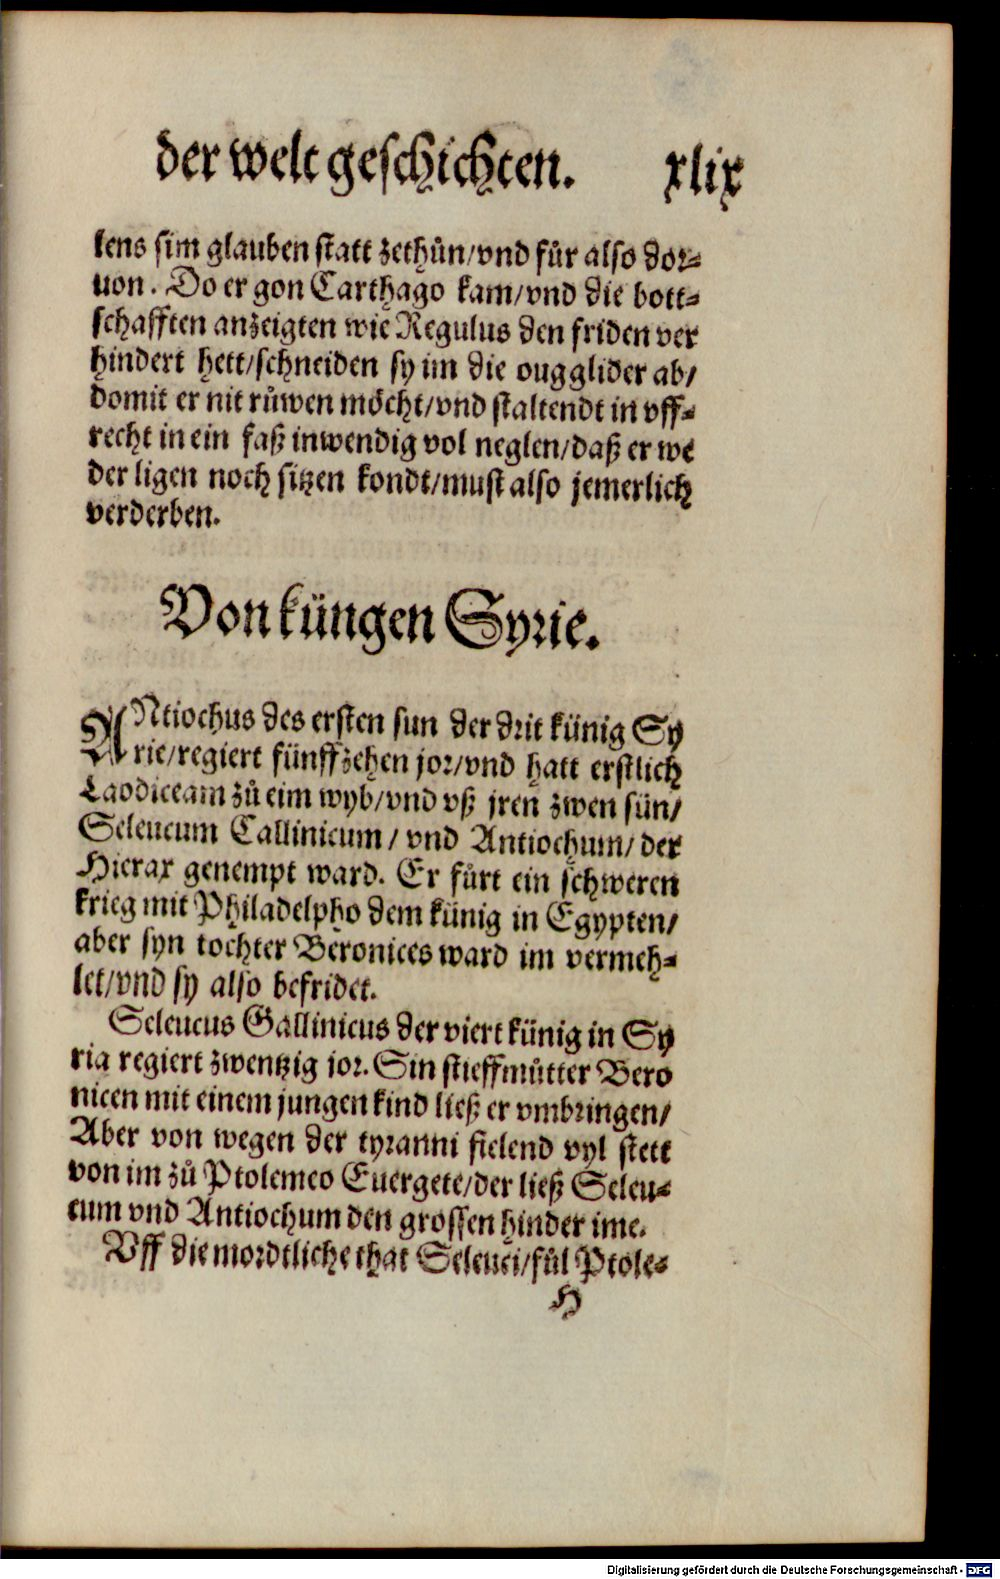 der welt geschichten. xlix
lens sim glauben statt zethůn/vnd fůr also dor⸗
uon. Do er gon Carthago kam/vnd die bott⸗
schafften anzeigten wie Regulus den friden ver
hindert hett/schneiden sy im die ougglider ab/
domit er nit růwen möcht/vnd staltendt in vff⸗
recht in ein faß inwendig vol neglen/daß er we
der ligen noch sitzen kondt/must also jemerlich
verderben.
Von küngen Syrie.
ANtiochus des ersten sun der drit künig Sy
rie/regiert fünffzehen jor/vnd hatt erstlich
Laodiceam zů eim wyb/vnd vß jren zwen sün/
Seleucum Callinicum/ vnd Antiochum/ der
Hierax genempt ward. Er fůrt ein schweren
krieg mit Philadelpho dem künig in Egypten/
aber syn tochter Beronices ward im vermeh⸗
let/vnd sy also befridet.
Seleucus Gallinicus der viert künig in Sy
ria regiert zwentzig jor. Sin stieffmůtter Bero
nicen mit einem jungen kind ließ er vmbringen/
Aber von wegen der tyranni fielend vyl stett
von im zů Ptolemeo Euergete/der ließ Seleu⸗
cum vnd Antiochum den grossen hinder ime.
Vff die mordtliche that Seleuci/fůl Ptole⸗
H
Digitalisierung gefördert durch die Deutsche Forschungsgemeinschaft - DFG